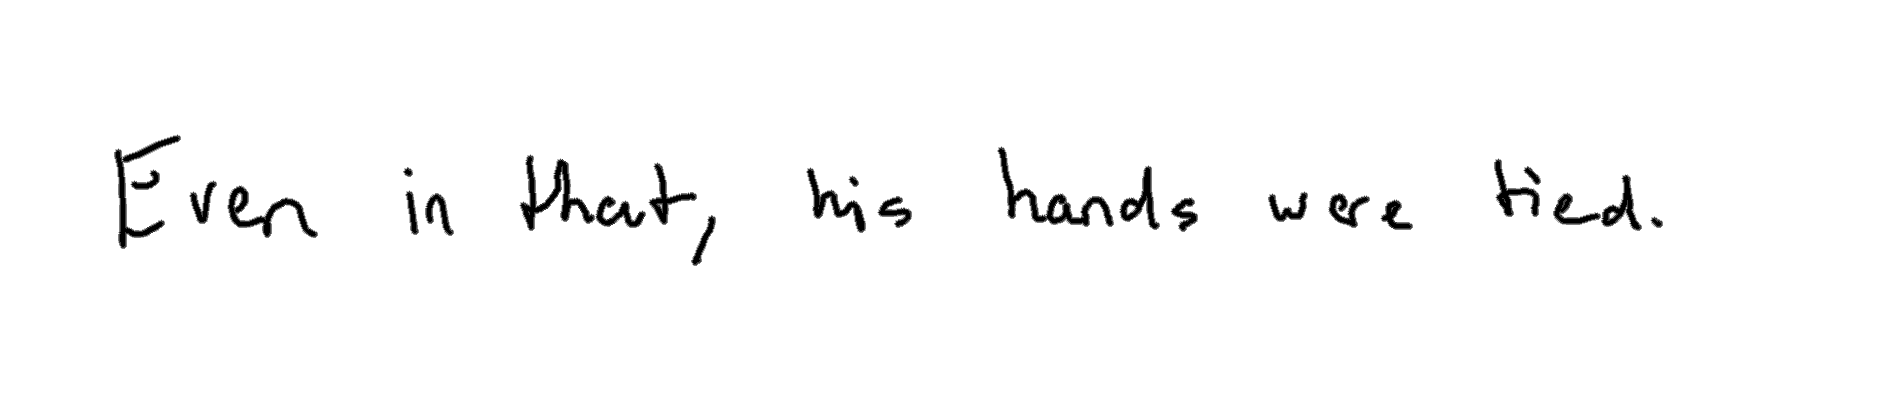 Even in that, his hands were tied.